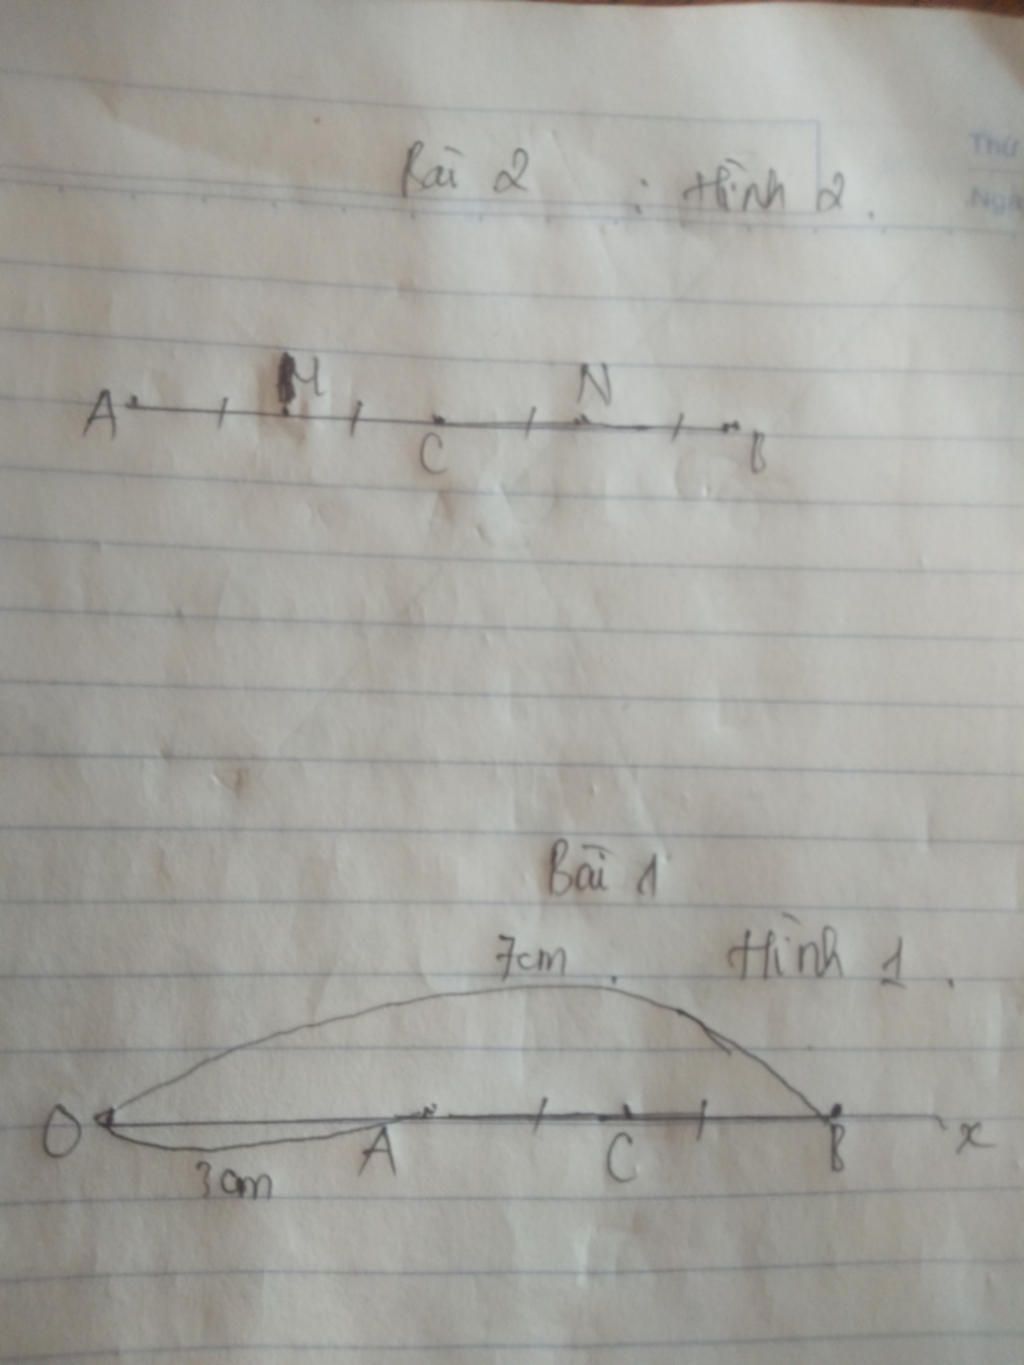 Thứ
Ngà
Bài 2 : Hình 2.
A M C N B
Bài 1
7cm. Hình 1.
O A C B x
3cm